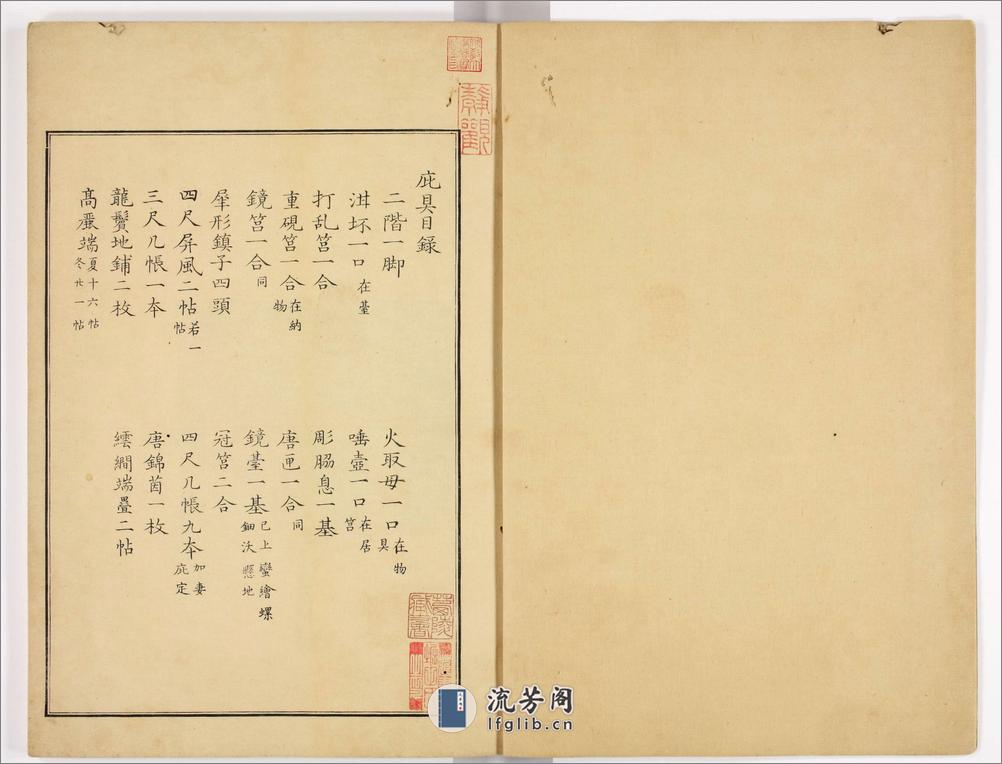 庇具目録
二階一脚
火取母一口在物具
泔坏一口在䑓
唾壺一口在居筥
打乱筥一合
彫脇息一基
重硯筥一合在納物
唐匣一合同
鏡筥一合同
鏡䑓一基已上蠻繪螺鈿沃懸地
犀形鎮子四頭
冠筥二合
四尺屏風二帖若一帖
四尺几帳九本加妻庇定
三尺几帳一本
唐錦茵一枚
龍鬢地鋪二枚
繧繝端疊二帖
髙麗端夏十六帖冬廿一帖
流芳阁
lfglib.cn